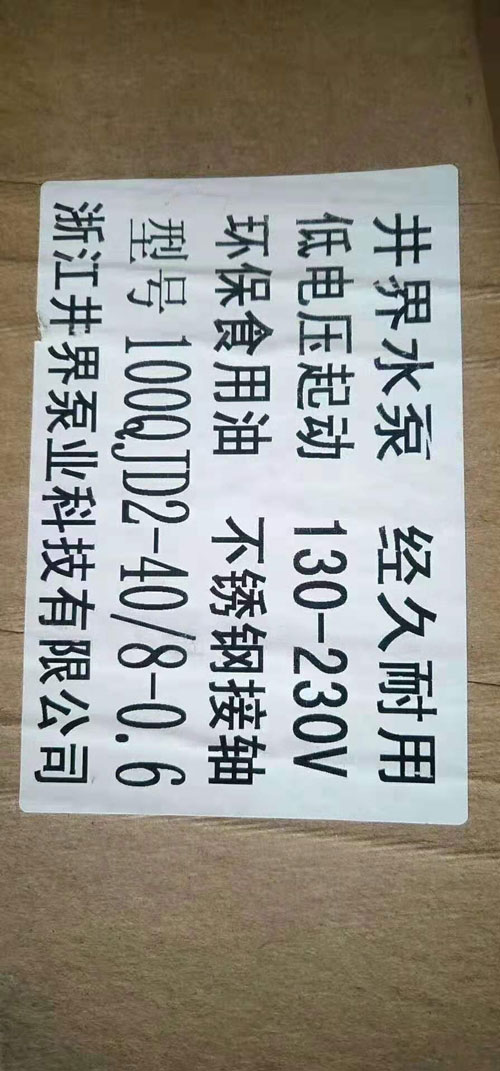 井界水泵 经久耐用
低电压起动 130-230V
环保食用油 不锈钢接轴
型号 100QJD2-40/8-0.6
浙江井界泵业科技有限公司